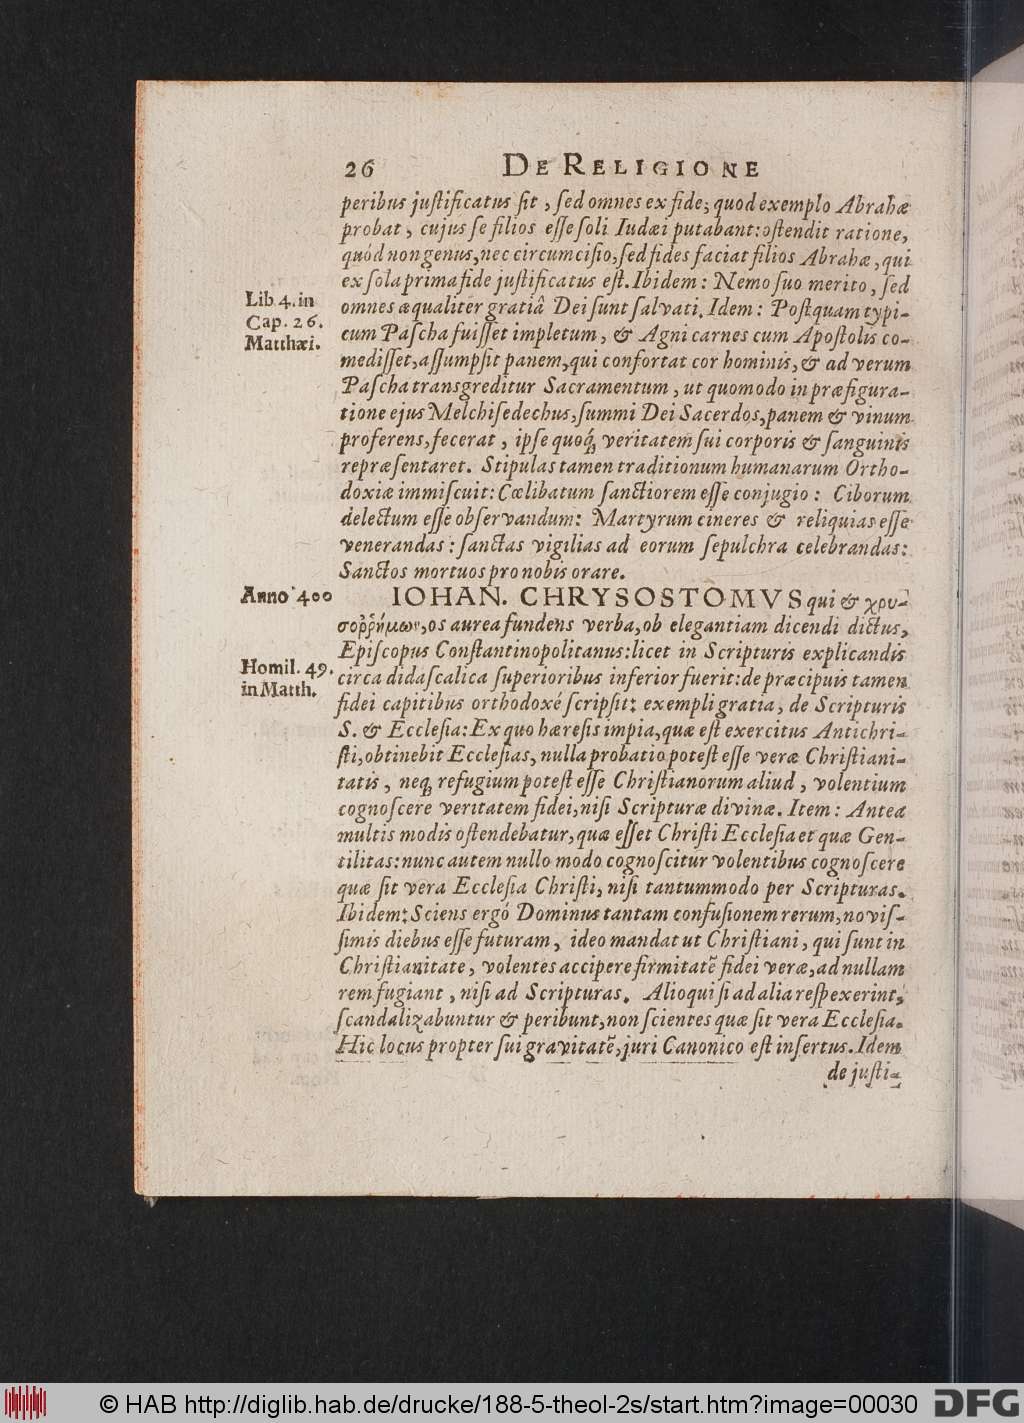 26 DE RELIGIONE
peribus juſtificatus ſit, ſed omnes ex fide; quod exemplo Abrahæ
probat, cujus ſe filios eſſe ſoli Iudæi putabant: oſtendit ratione,
quód non genus, nec circumciſio, ſed fides faciat filios Abrahæ, qui
ex ſola prima fide juſtificatus eſt. Ibidem: Nemo ſuo merito, ſed
Lib. 4. in
omnes æqualiter gratiâ Dei ſunt ſalvati. Idem: Poſtquam typi-
Cap. 26.
cum Paſcha fuiſſet impletum, & Agni carnes cum Apoſtolis co-
Matthæi.
mediſſet, aſſumpſit panem, qui confortat cor hominis, & ad verum
Paſcha transgreditur Sacramentum, ut quomodo in præfigura-
tione ejus Melchiſedechus, ſummi Dei Sacerdos, panem & vinum
proferens, fecerat, ipſe quoq́; veritatem ſui corporis & ſanguinis
repræſentaret. Stipulas tamen traditionum humanarum Ortho-
doxiæ immiſcuit: Cælibatum ſanctiorem eſſe conjugio: Ciborum
delectum eſſe obſervandum: Martyrum cineres & reliquias eſſe
venerandas: ſanctas vigilias ad eorum ſepulchra celebrandas:
Sanctos mortuos pro nobis orare.
Anno 400
IOHAN. CHRYSOSTOMVS qui & χρυ-
σοῤῥήμων, os aurea fundens verba, ob elegantiam dicendi dictus,
Epiſcopus Conſtantinopolitanus: licet in Scripturis explicandis
Homil. 49.
circa didaſcalica ſuperioribus inferior fuerit: de præcipuis tamen
in Matth.
fidei capitibus orthodoxé ſcripſit: exempli gratia, de Scripturis
S. & Eccleſia: Ex quo hæreſis impia, quæ eſt exercitus Antichri-
ſti, obtinebit Eccleſias, nulla probatio poteſt eſſe veræ Chriſtiani-
tatis, neq; refugium poteſt eſſe Chriſtianorum aliud, volentium
cognoſcere veritatem fidei, niſi Scripturæ divinæ. Item: Antea
multis modis oſtendebatur, quæ eſſet Chriſti Eccleſia et quæ Gen-
tilitas: nunc autem nullo modo cognoſcitur volentibus cognoſcere
quæ ſit vera Eccleſia Chriſti, niſi tantummodo per Scripturas.
Ibidem: Sciens ergó Dominus tantam confuſionem rerum, noviſ-
ſimis diebus eſſe futuram, ideo mandat ut Chriſtiani, qui ſunt in
Chriſtianitate, volentes accipere firmitatẽ fidei veræ, ad nullam
rem fugiant, niſi ad Scripturas. Alioqui ſi ad alia reſpexerint,
ſcandalizabuntur & peribunt, non ſcientes quæ ſit vera Eccleſia.
Hic locus propter ſui gravitatẽ, juri Canonico eſt inſertus. Idem
de juſti-
© HAB http://diglib.hab.de/drucke/188-5-theol-2s/start.htm?image=00030 DFG